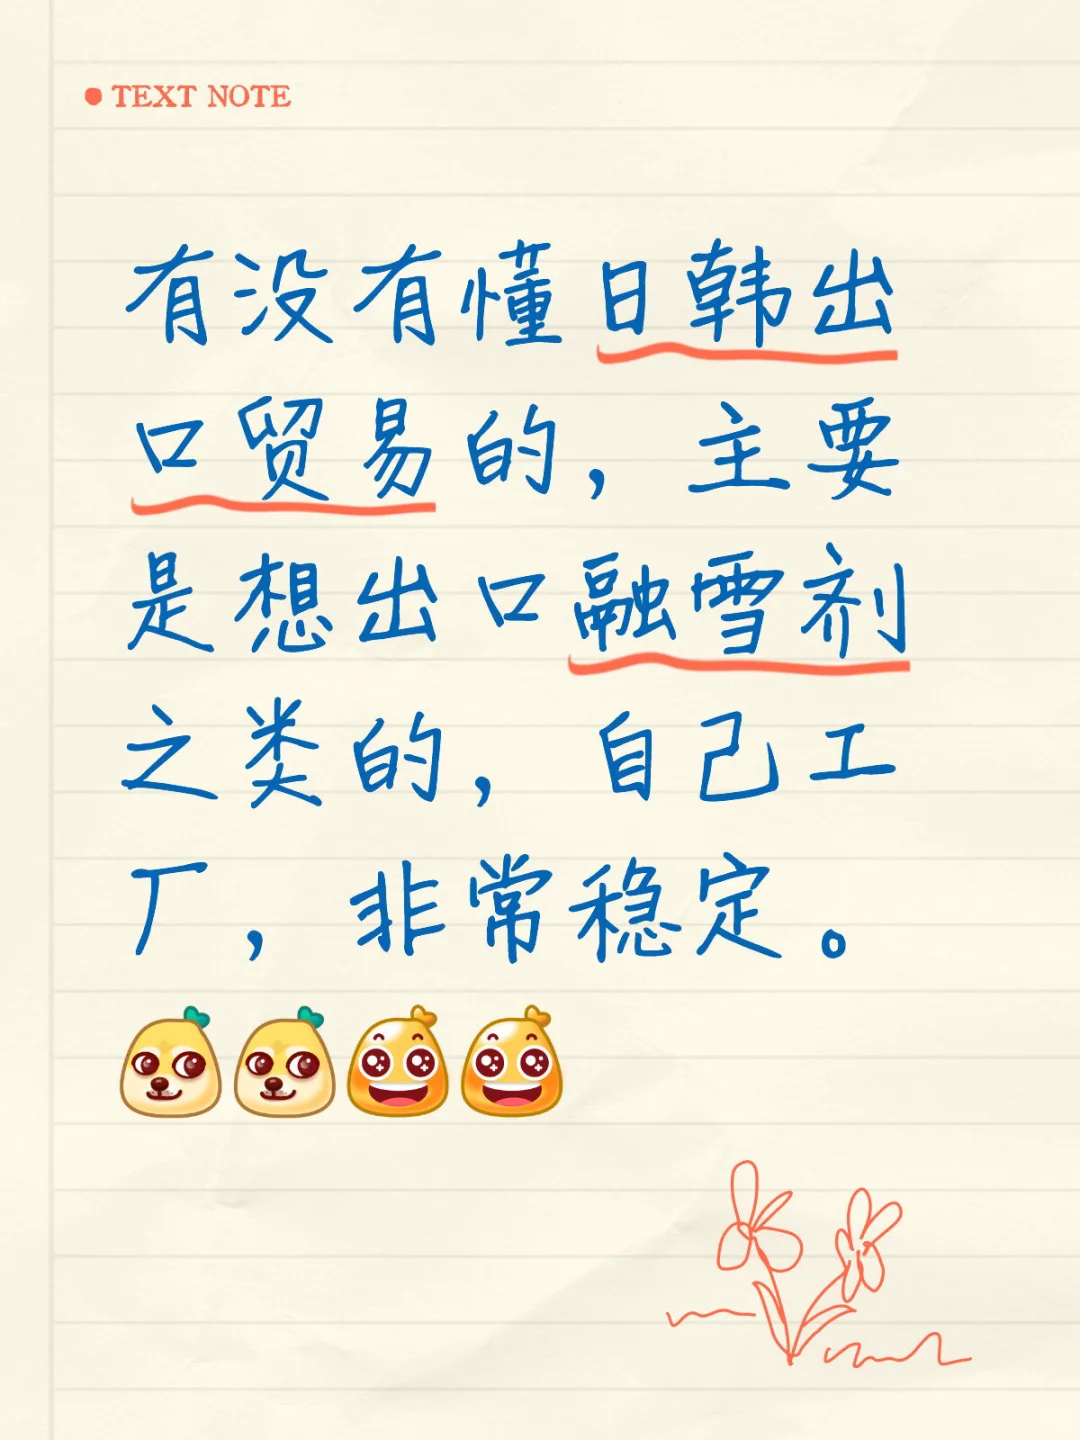 TEXT NOTE
有没有懂日韩出
口贸易的，主要
是想出口融雪剂
之类的，自己工
厂，非常稳定。